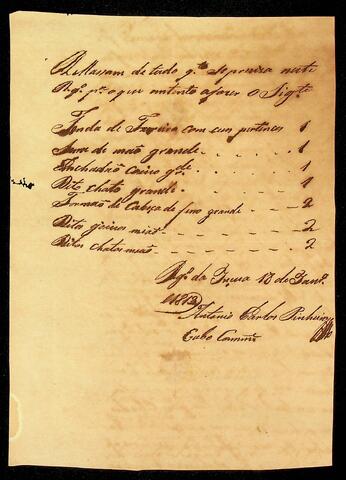 Rellassam de tudo q.to Se preciza neste
Reg.o p.a o que entento afazer o Seg.te
Tenda de Ferreiro com seus pertences 1
Serra de mão grande 1
Enchadão Goivo g.de 1
D.to chato grande 1
Formão de Cabeça de ferro grande 2
Ditos goivos 2
Ditos chatos 2
Reg.o da 18 de Jan.o
Antonio Carlos Pinheiro
Cabo Comm.e